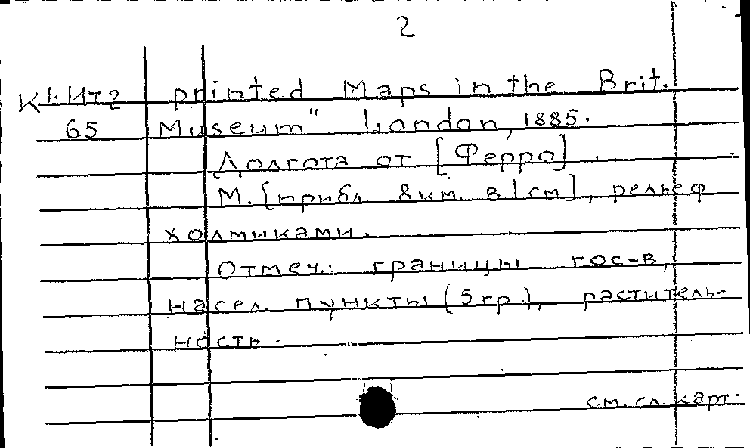 2
printed Maps in the Brit.
65 Museum" London, 1885.
Долгота от [Ферро]
М. [прибл. 8 км. в 1 см], рельеф
холмиками.
Отмеч. границы гос-в,
насел. пункты (5 гр.), раститель-
ность.
см. сл. карт.